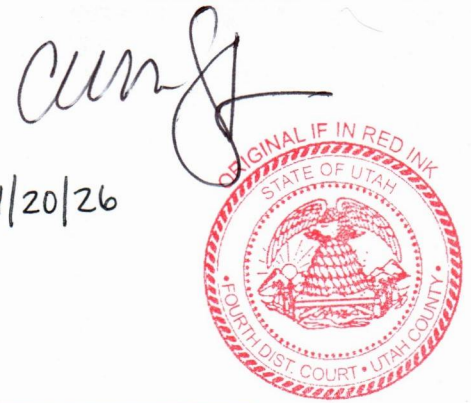 /20/26
ORIGINAL IF IN RED INK
STATE OF UTAH
• FOURTH DIST. COURT • UTAH COUNTY •